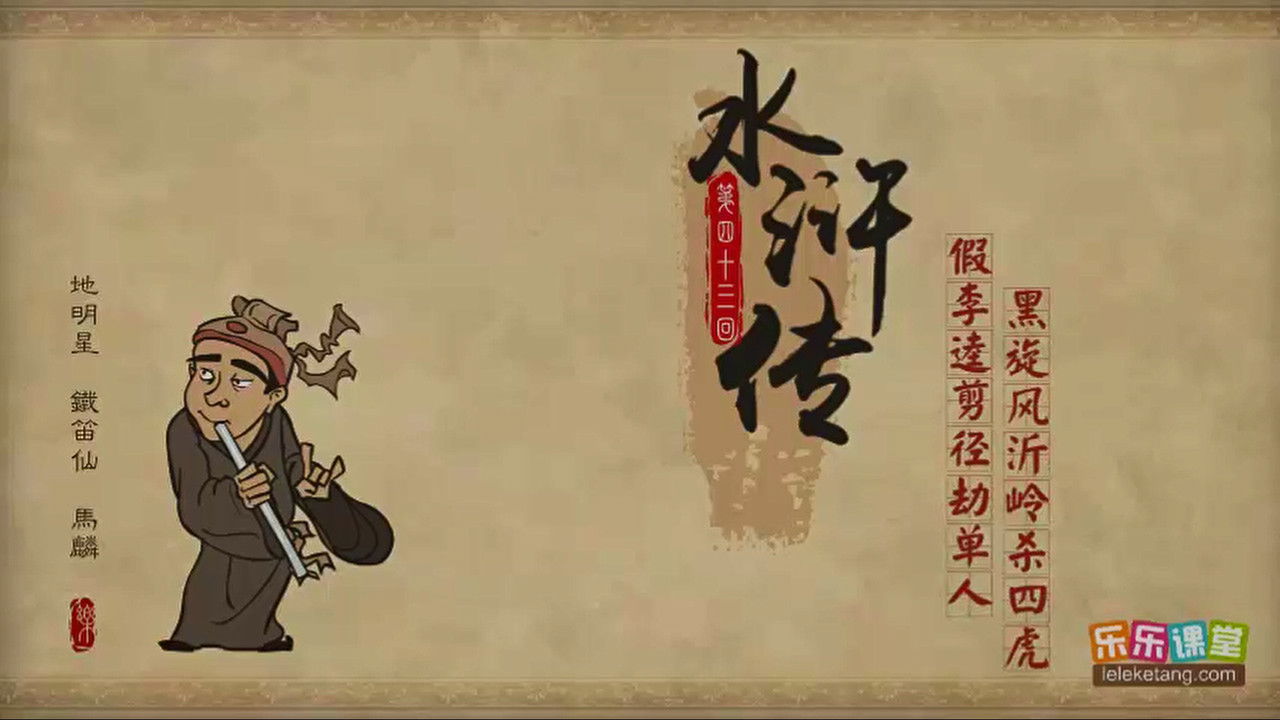 水浒传
第四十三回
假李逵剪径劫单人
黑旋风沂岭杀四虎
地明星 鐵笛仙 馬麟
樂
乐乐课堂
leleketang.com